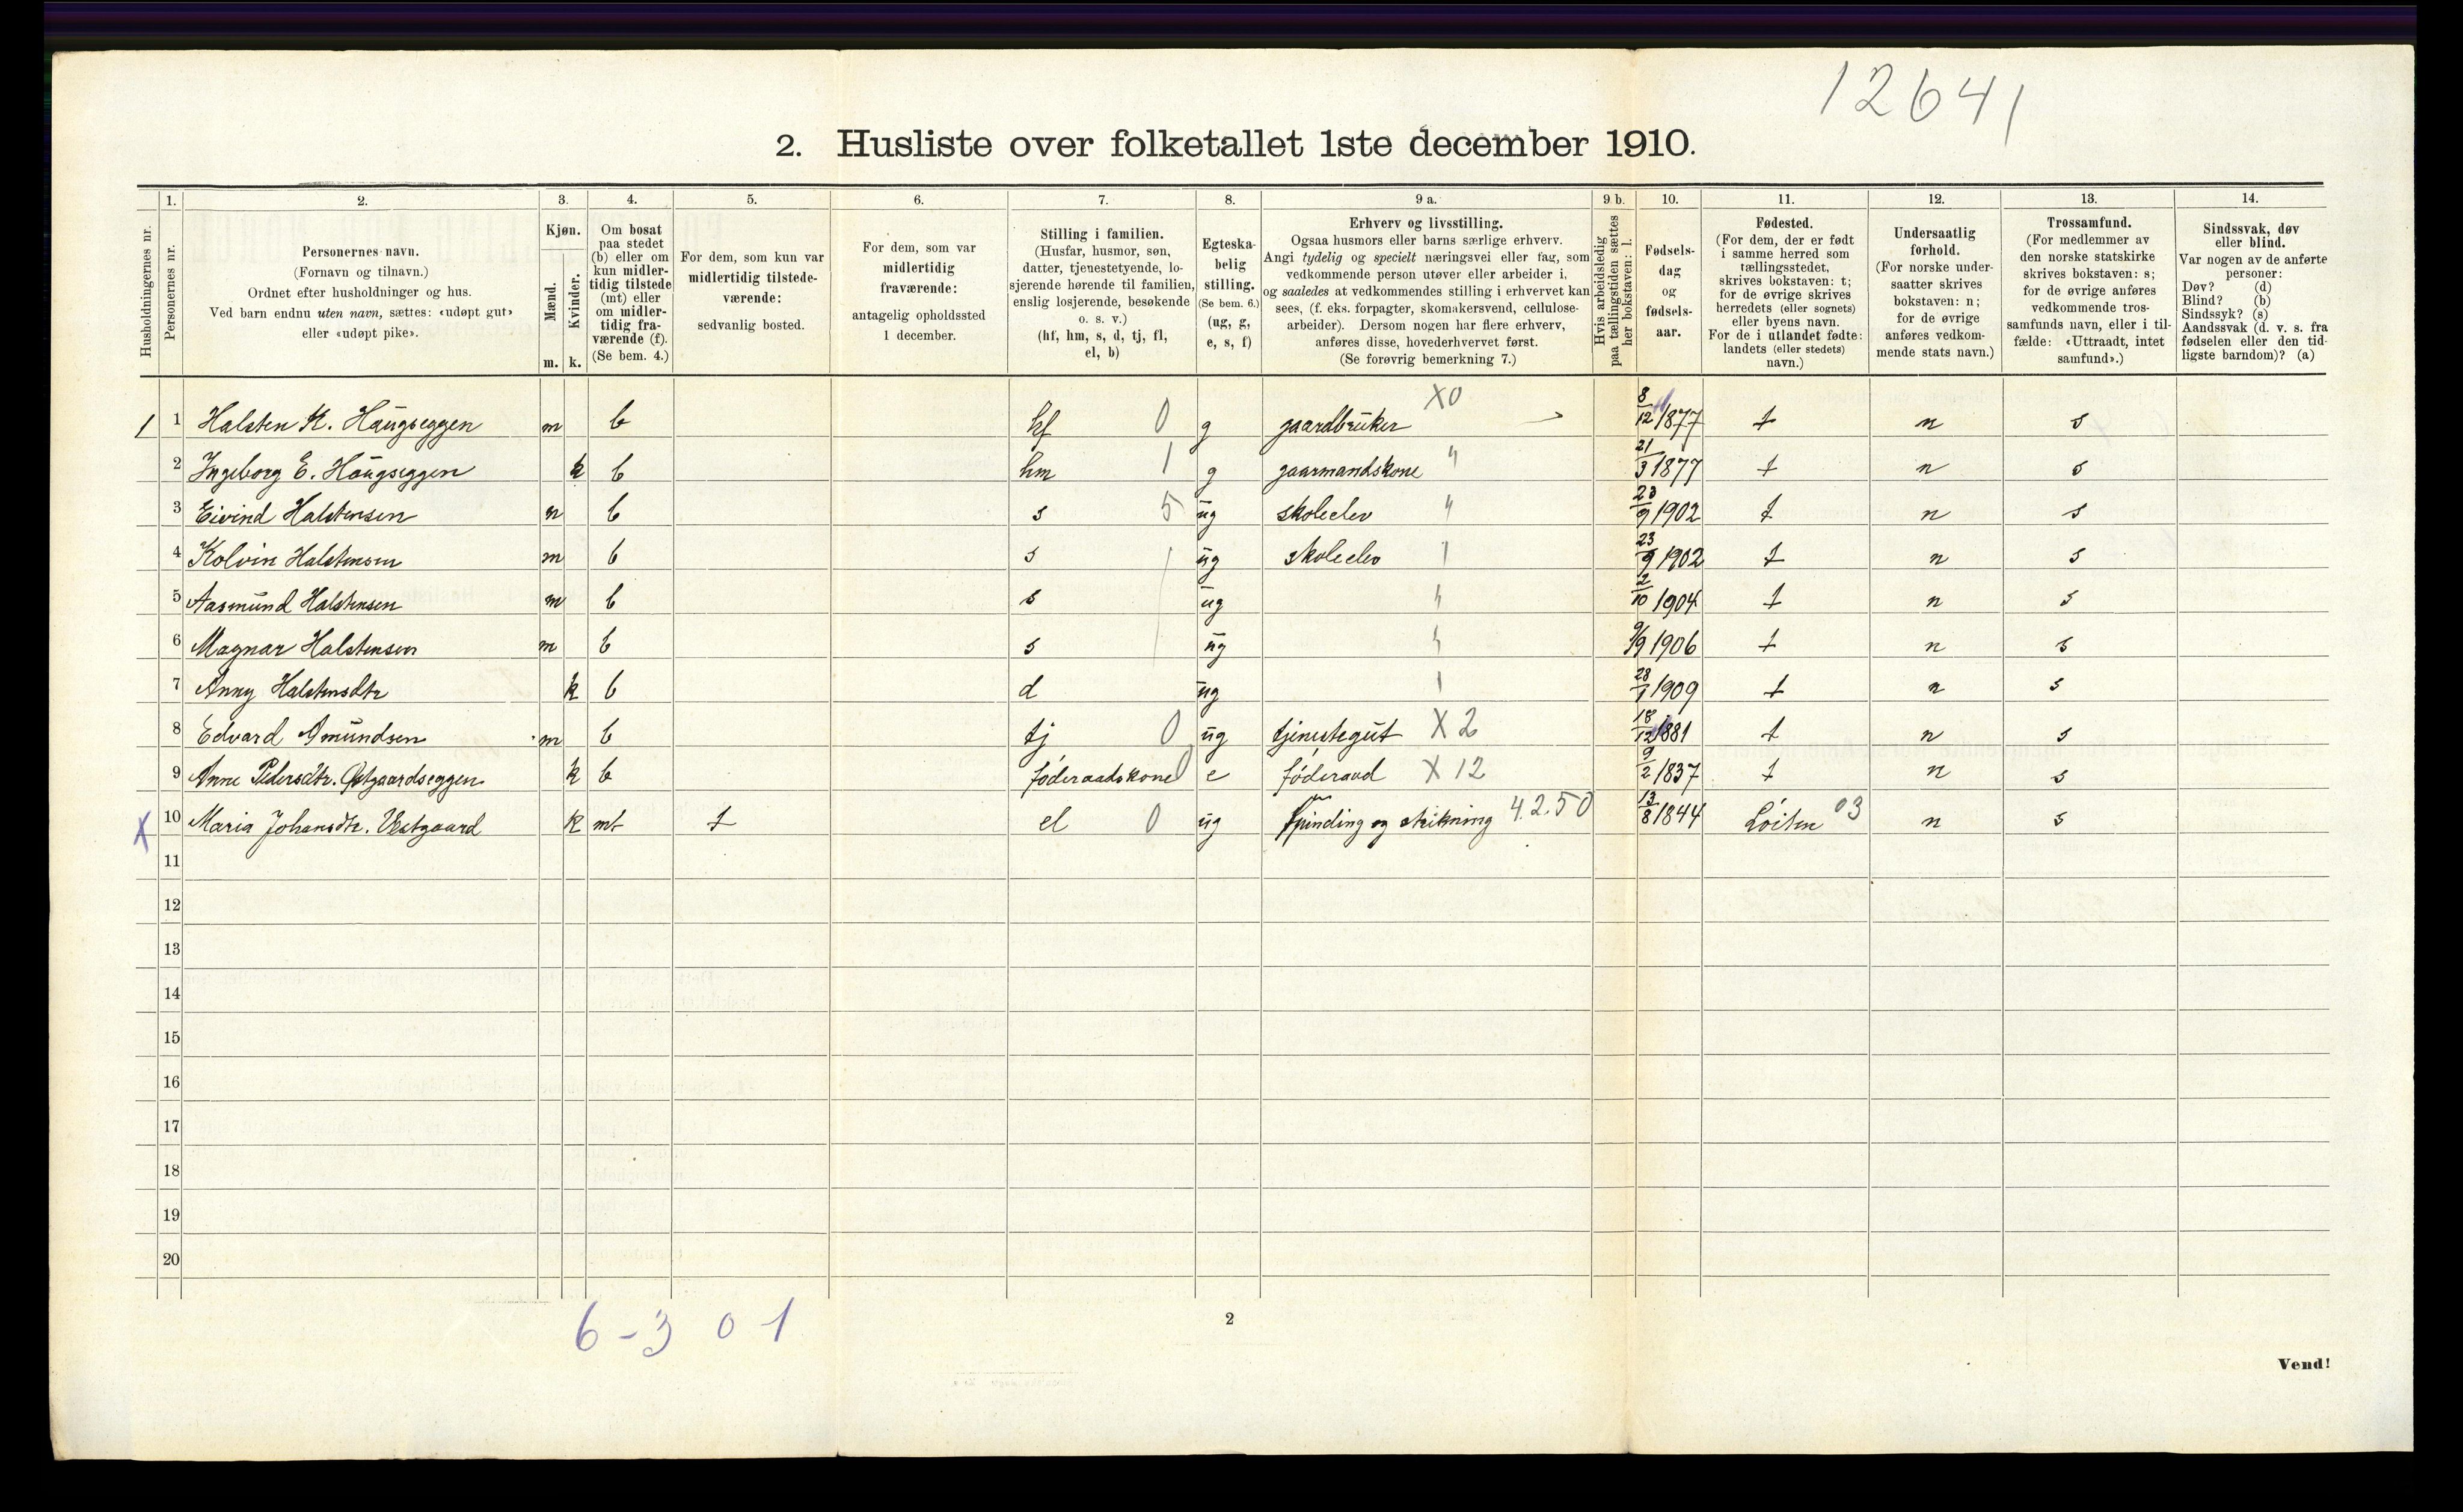 12641
2. Husliste over folketallet 1ste december 1910.
1. 2. 3. 4. 5. 6. 7. 8. 9 a. 9 b. 10. 11. 12. 13. 14.
Husholdningernes nr.
Personernes nr.
Personernes navn.
(Fornavn og tilnavn.)
Ordnet efter husholdninger og hus.
Ved barn endnu uten navn, sættes: «udøpt gut»
eller «udøpt pike».
Kjøn.
Mænd.
Kvinder.
m. k.
Om bosat
paa stedet
(b) eller om
kun midler-
tidig tilstede
(mt) eller
om midler-
tidig fra-
værende (f).
(Se bem. 4.)
For dem, som kun var
midlertidig tilstede-
værende:
sedvanlig bosted.
For dem, som var
midlertidig
fraværende:
antagelig opholdssted
1 december.
Stilling i familien.
(Husfar, husmor, søn,
datter, tjenestetyende, lo-
sjerende hørende til familien,
enslig losjerende, besøkende
o. s. v.)
(hf, hm, s, d, tj, fl,
el, b)
Egteska-
belig
stilling.
(Se bem. 6.)
(ug, g,
e, s, f)
Erhverv og livsstilling.
Ogsaa husmors eller barns særlige erhverv.
Angi tydelig og specielt næringsvei eller fag, som
vedkommende person utøver eller arbeider i,
og saaledes at vedkommendes stilling i erhvervet kan
sees, (f. eks. forpagter, skomakersvend, cellulose-
arbeider). Dersom nogen har flere erhverv,
anføres disse, hovederhvervet først.
(Se forøvrig bemerkning 7.)
Hvis arbeidsledig
paa tællingstiden sættes
her bokstaven: l.
Fødsels-
dag
og
fødsels-
aar.
Fødested.
(For dem, der er født
i samme herred som
tællingsstedet,
skrives bokstaven: t;
for de øvrige skrives
herredets (eller sognets)
eller byens navn.
For de i utlandet fødte:
landets (eller stedets)
navn.)
Undersaatlig
forhold.
(For norske under-
saatter skrives
bokstaven: n;
for de øvrige
anføres vedkom-
mende stats navn.)
Trossamfund.
(For medlemmer av
den norske statskirke
skrives bokstaven: s;
for de øvrige anføres
vedkommende tros-
samfunds navn, eller i til-
fælde: «Uttraadt, intet
samfund».)
Sindssvak, døv
eller blind.
Var nogen av de anførte
personer:
Døv? (d)
Blind? (b)
Sindssyk? (s)
Aandssvak (d. v. s. fra
fødselen eller den tid-
ligste barndom)? (a)
1 1 Halsten K. Haugseggen m b hf 0 g gaardbruker X0 8/12 1877 t n s
2 Ingeborg E. Haugseggen k b hm 1 g gaarmandskone " 21/3 1877 t n s
3 Eivind Halstensen m b s 5 ug skoleelev " 23/9 1902 t n s
4 Kolvin Halstensen m b s ug skoleelev 23/9 1902 t n s
5 Aasmund Halstensen m b s ug 2/10 1904 t n s
6 Magnar Halstensen m b s ug 9/9 1906 t n s
7 Anny Halstensdtr k b d ug 28/1 1909 t n s
8 Edvard Amundsen m b tj 0 ug tjenestegut X 2 18/12 1881 t n s
9 Anne Pedersdtr. Østgaardseggen k b føderaadskone 0 e føderaad X 12 9/2 1837 t n s
X 10 Maria Johansdtr. Vestgaard k mt t el 0 ug Spinding og strikning 4.2.50 13/8 1844 Løiten 03 n s
11
12
13
14
15
16
17
18
19
20
6 - 3 0 1
2
Vend!